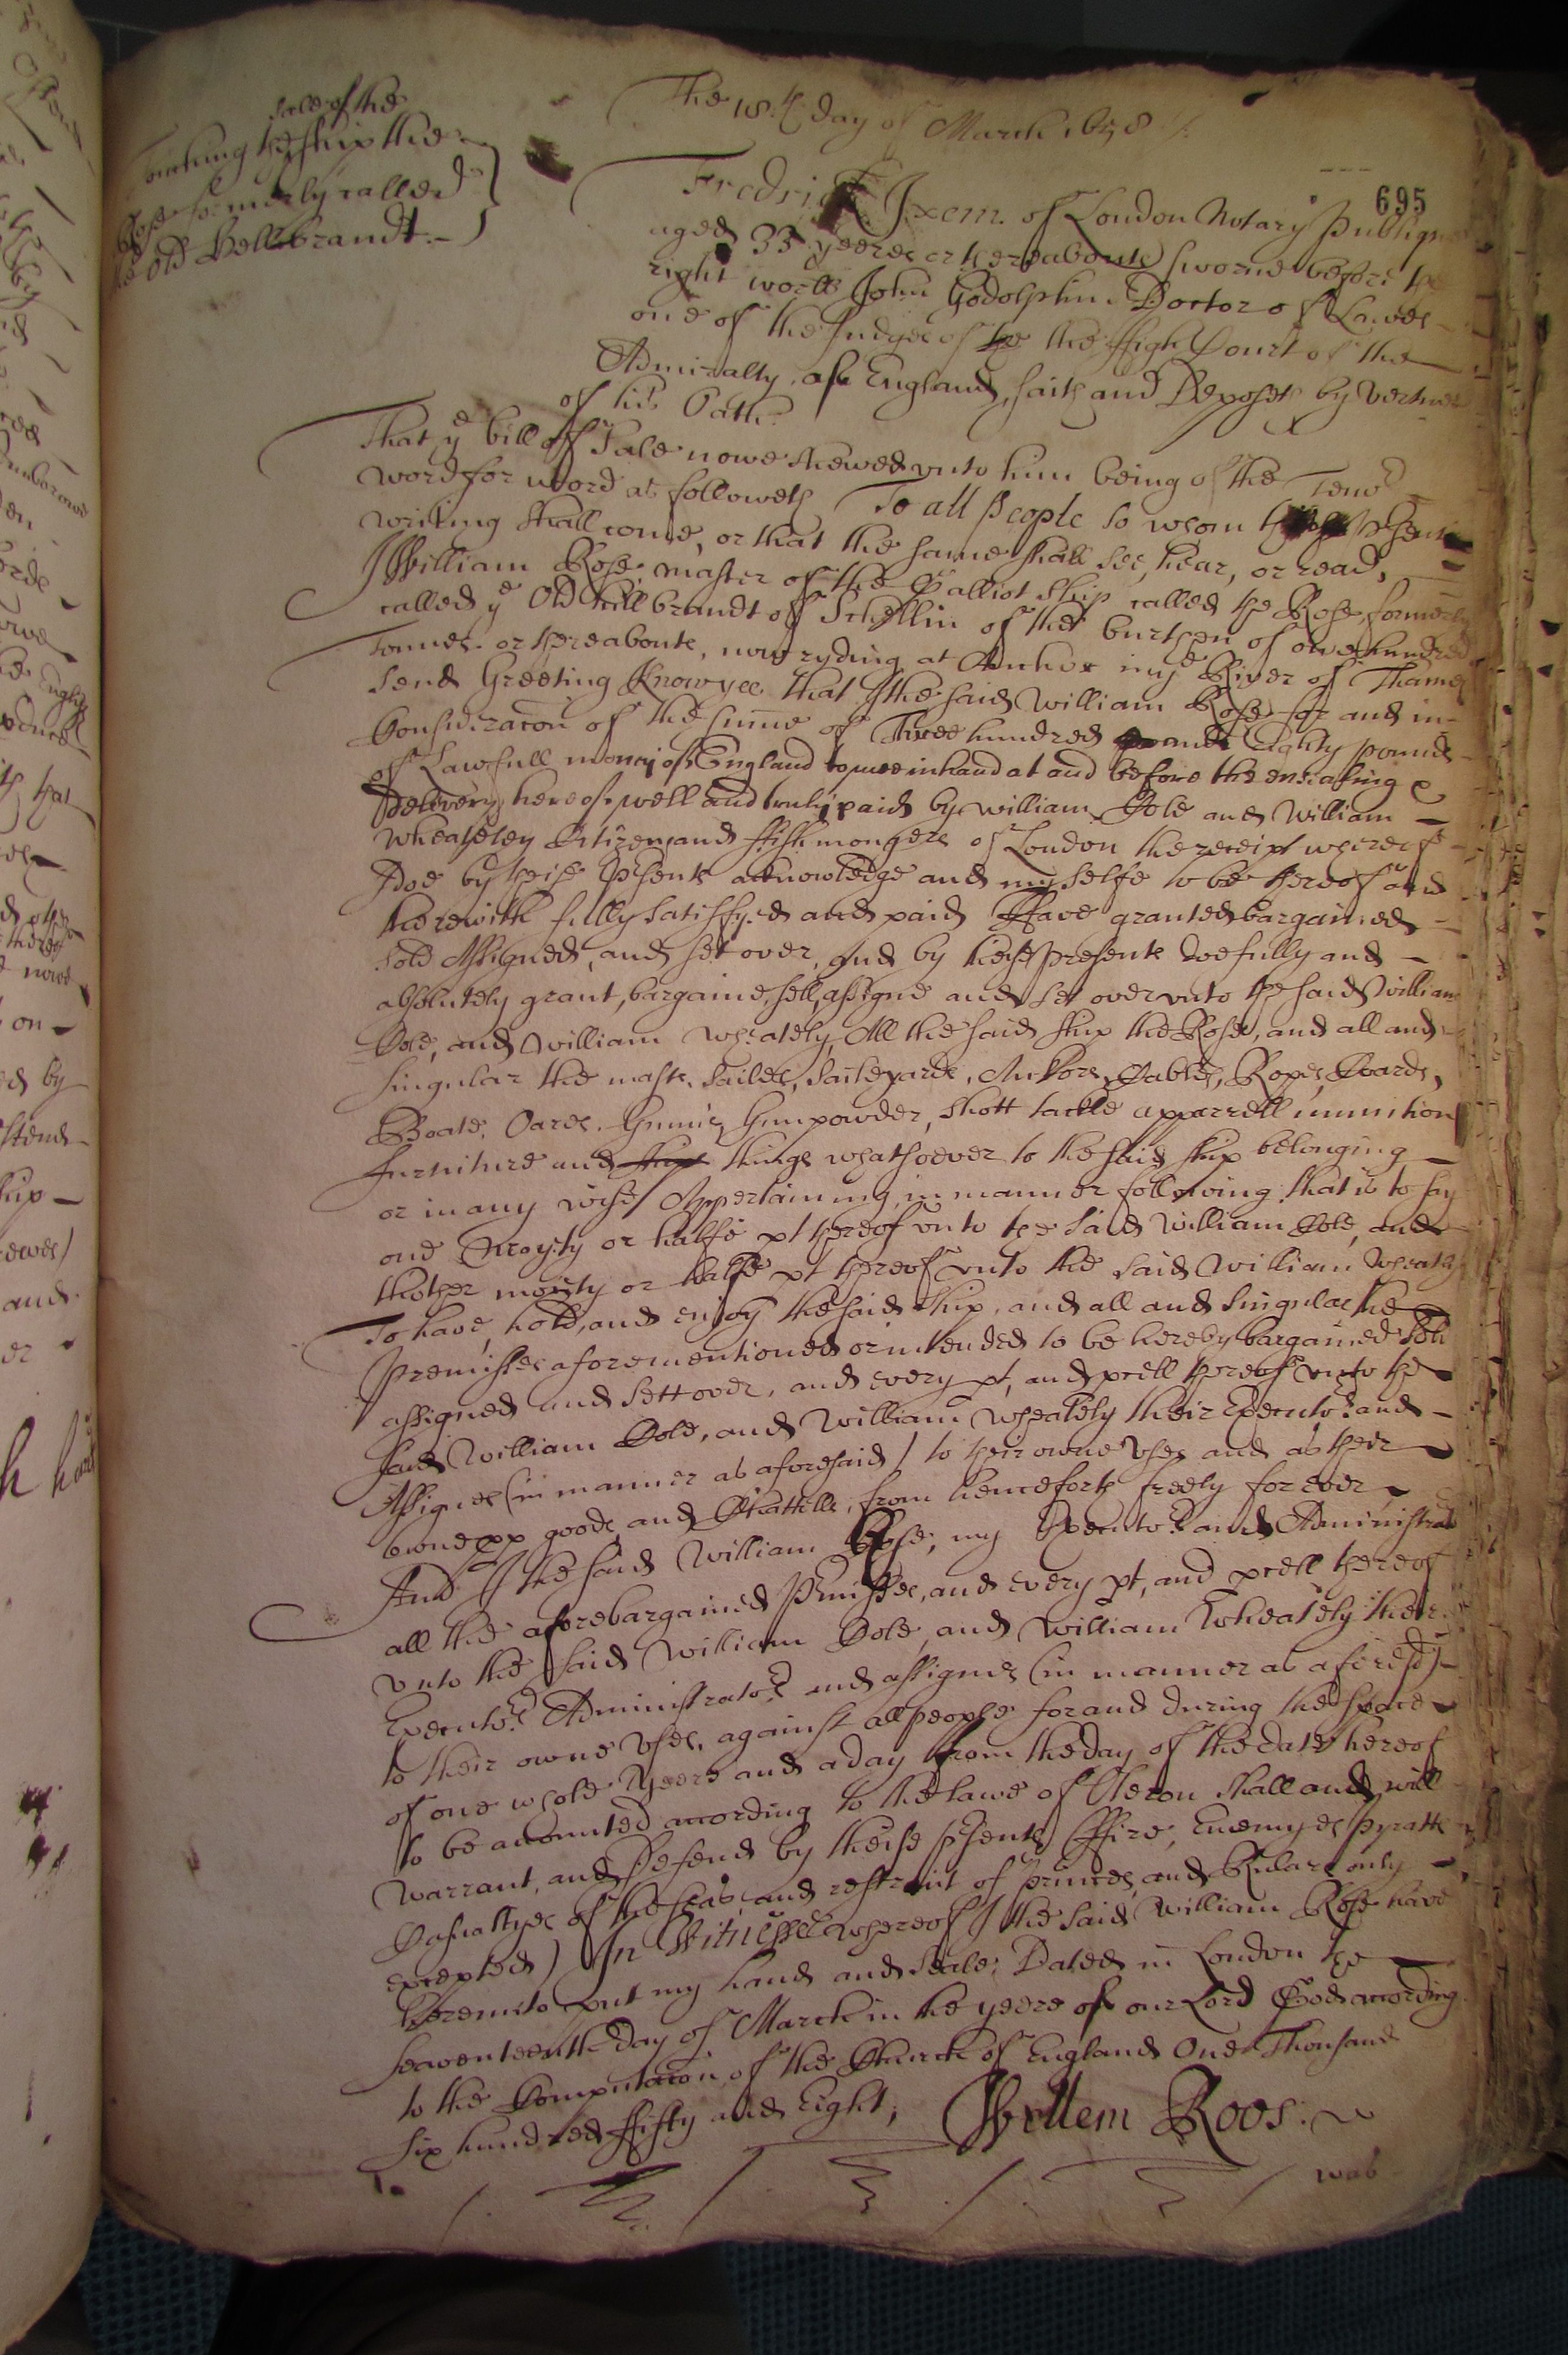 The 18th. day of March 1658 /.
695
sale of the
Touching the ship the
Rose formerly called
the Old Hellebrandt.-
Fredrick Ixem. of London Notary Publique
aged 33 yeeres or thereaboute sworne before the
right worll John Godolphin Doctor of Lawes
one of the Judges of the the High Court of the
Admiralty of England, saith and Deposeth by vertue
of his Oath.
That ye bill off Sale nowe shewed vnto him being of the Tenor
word for word as followeth To all People to whom this present
writing shall come, or that the same shall see, hear, or read,
I William Rose, master of the Galliot ship called the Rose formerly
called ye Old Hillbrandt of Schellin of the burthen of one hundred
Tonnes. or thereaboute, now ryding at Anchor in ye River of Thames
send Greeting Know yee that I the said William Rose for and in
Consideracon of the summe of Three hundred and Eighty pounds
of Lawfull money of England to mee in hand at and before the ensealing &
Delivery hereof well and truly paid by William Cole and William
Wheateley Citizen and ffishmongers of London the receipt whereof
I doe by theise Psents acknowledge and my selfe to be thereof and
therewith fully satisfyed and paid Have granted bargained
sold Assigned, and set over, and by theise presents doe fully and
absolutely grant, bargaine, sell, assigne and set over vnto the said William
Cole, and William Wheately, All the said ship the Rose, and all and
singular the masts. Sailes, Saileyards, Anchors, Cables, Ropes, Coards,
Boate, Oares. Gunns, Gunpowder, shott tackle apparrell munition
furniture and things whatsoever to the said ship belonging
or in any wise Appertaining, in manner following that is to say
one Moyity or halfe pt thereof vnto the said William Cole, and
thother moyity or halfe pt thereof vnto the said William Wheately
To have, hold, and enjoy the said ship, and all and singular the
Premisses aforementioned or intended to be hereby bargained sold
assigned and sett over, and every pt, and prcell thereof vnto the
said William Cole, and William Wheately their Executors and
Assignes (in manner as aforesaid) to their owne vses and as their
owne pp goods, and Chattells, from henceforth freely for ever
And I the said William Rose, my Executors and Administrators
all the aforebargained Pmisses, and every pt, and prcell thereof
vnto the said William Cole, and William Wheately their
Executors Administrators and assignes (in manner as aforesd)
to their owne vses, against all people for and during the space
of one whole yeere and a day from the day of the date hereof
to be accounted according to the lawe of Oleron shall and will
warrant, and Defend by theise psents (ffire, Enemyes Pyratts
Casualtyes of the seas, and restraint of princes, and Rulars only
excepted) In Witnesse whereof I the said William Rose have
herevnto put my hand and Seale, Dated in London the
seaventeenth day of March in the yeere of our Lord God according
to the Computacon of the Church of England One Thousand
six hundred ffifty and Eight, Willem Roos.
was